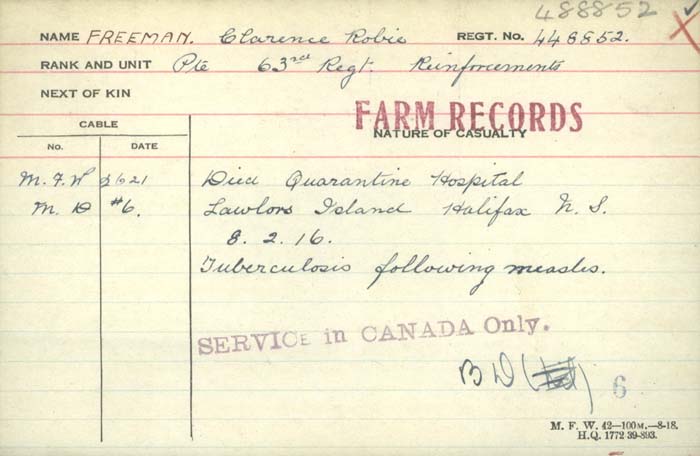 488852
NAME FREEMAN. Clarence Robie REGT. No. 448852.
RANK AND UNIT Pte 63rd Regt. Reinforcements
NEXT OF KIN
FARM RECORDS
CABLE NATURE OF CASUALTY
No. DATE
M.F.W 2621 Died Quarantine Hospital
M. D #6. Lawlors Island Halifax N. S.
8. 2. 16.
Tuberculosis following measles.
SERVICE in CANADA Only.
B D 6
M. F. W. 42—100M.—8-18.
H.Q. 1772 39-893.